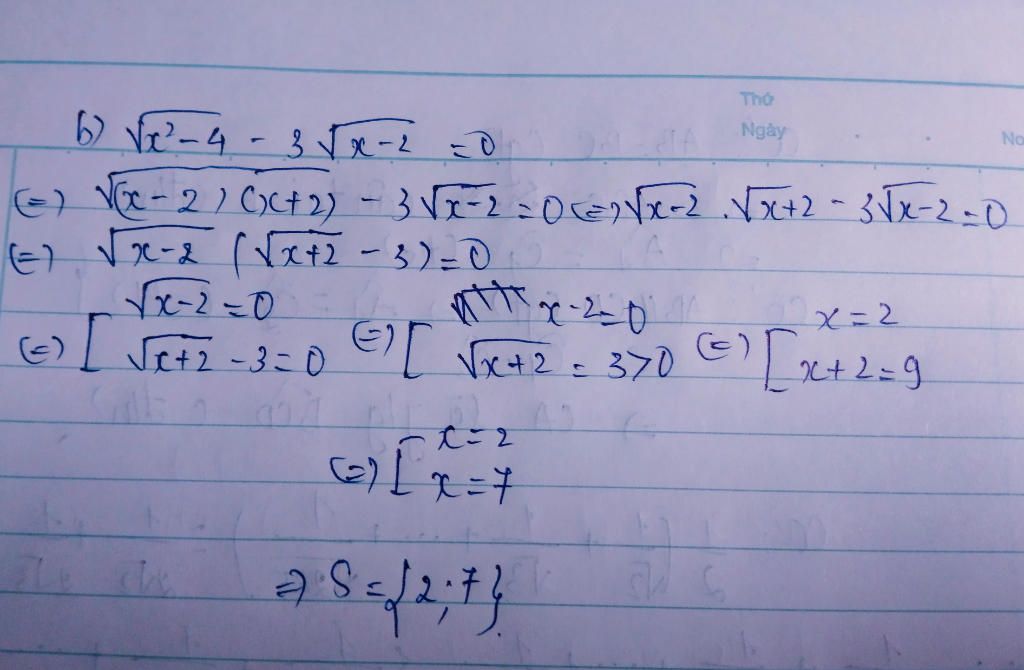 Thứ
Ngày
No
b) √(x²-4) - 3√(x-2) = 0
(=) √((x-2)(x+2)) - 3√(x-2) = 0 (=) √(x-2) . √(x+2) - 3√(x-2) = 0
(=) √(x-2) (√(x+2) - 3) = 0
(=) [ √(x-2) = 0 (=) [ x-2=0 (=) [ x=2
√(x+2) - 3 = 0 √(x+2) = 3>0 x+2=9
(=) [ x=2
x=7
=> S={2;7}